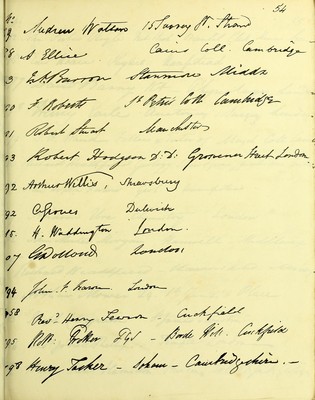 54
Andrew Watson 15 Surrey St. Strand
A Ellice Caius Coll. Cambridge
3 Barron Stanmore Middx
F. Roberts St Peters Coll Cambridge
01 Robert Stuart Manchester
03 Robert Hodgson D.D. Grosvenor Street London
92 Arthur Willis, Shrewsbury
92 C Groves Dulwich
15. H. Waddington London.
07 G Dollond London
94 John London
58 Revd Henry Cuckfield
95 Borde Hill. Cuckfield
98 Henry Tucker - Soham - Cambridgeshire. -